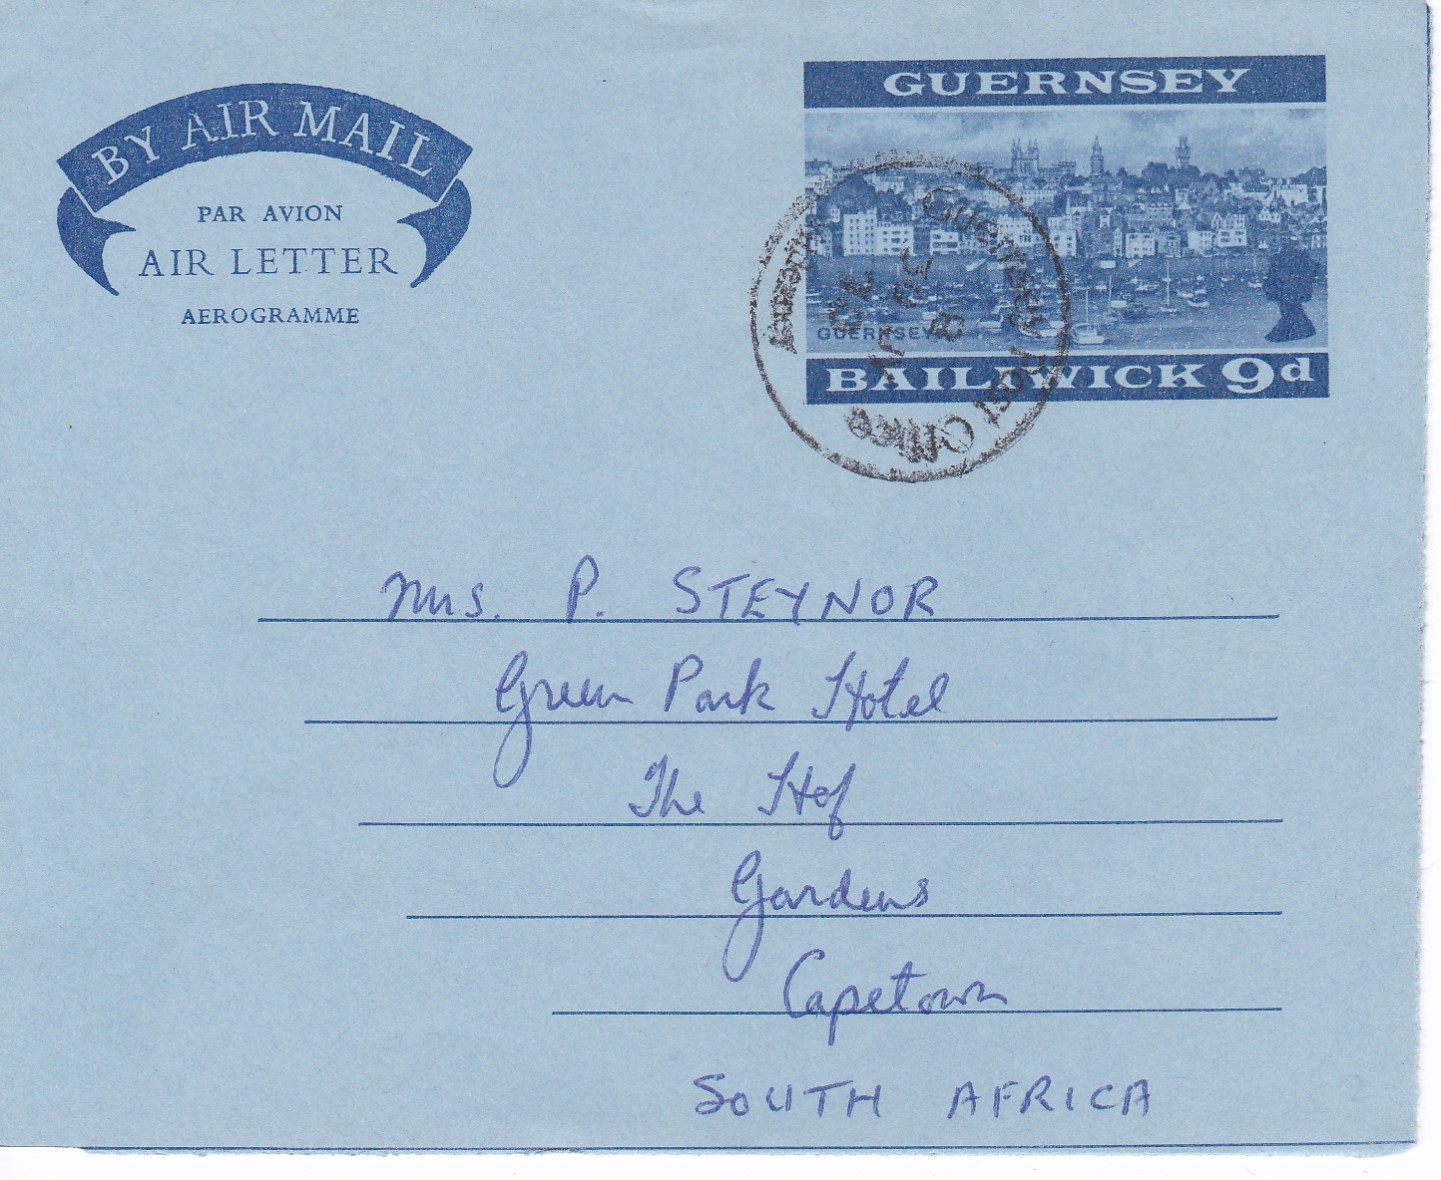 BY AIR MAIL
PAR AVION
AIR LETTER
AEROGRAMME
GUERNSEY
GUERNSEY
BAILIWICK 9d
Guernsey Post Office
Mrs. P. STEYNOR
Green Park Hotel
The Hof
Gardens
Capetown
SOUTH AFRICA